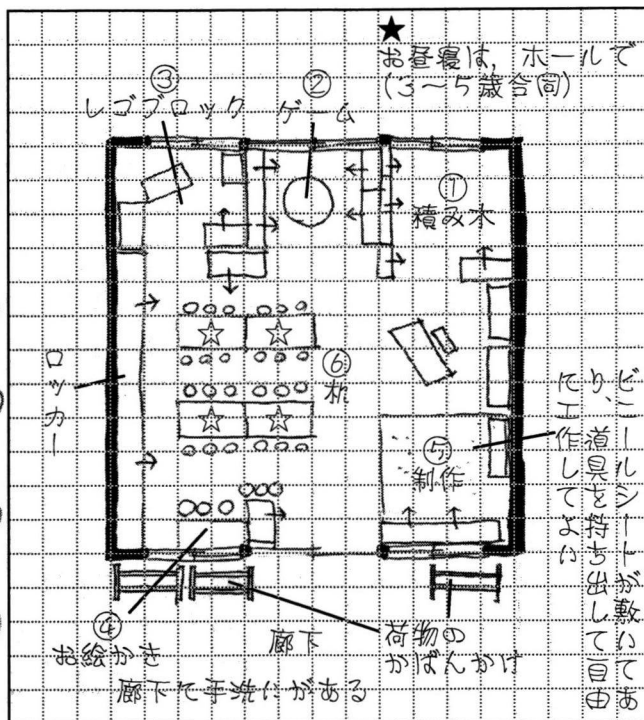 ★
お昼寝は、ホールで
(3〜5歳合同)
③
レゴブロック
②
ゲーム
①
積み木
ロッカー
⑥
机
⑤
制作
ビニールシートが敷いてあ
り、道具を持ち出して自由
に工作してよい
④
お絵かき
廊下
荷物の
かばんかけ
廊下で手洗いがある